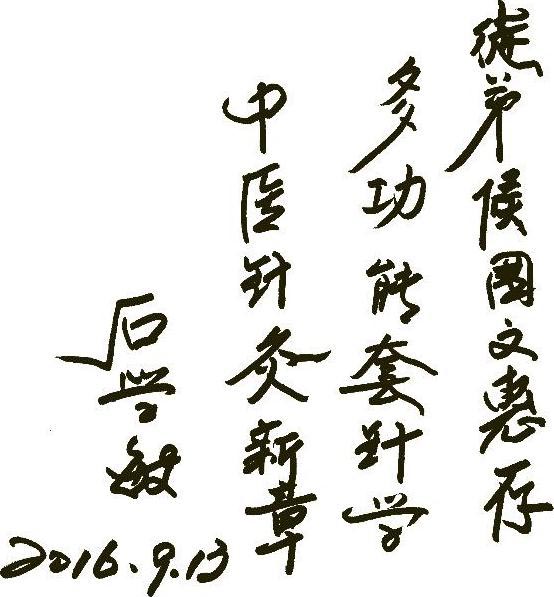 徒弟侯国文惠存
多功能套针学
中医针灸新章
石学敏
2016.9.13